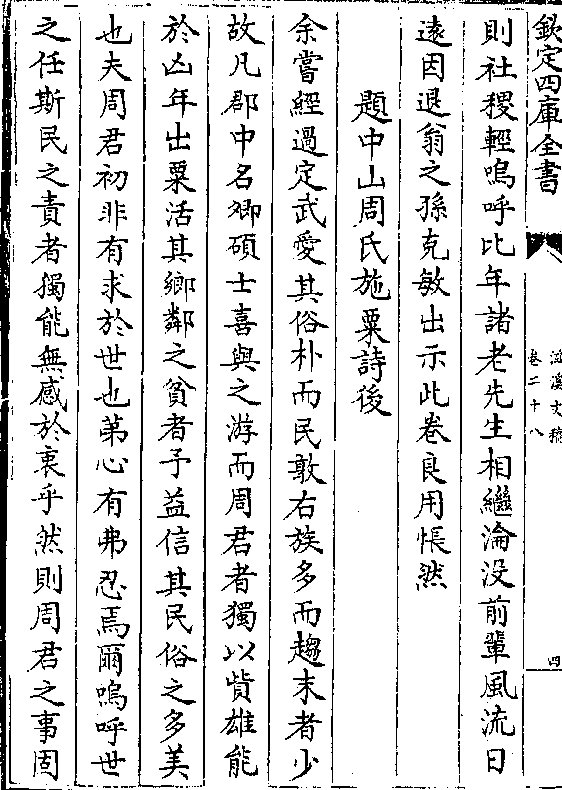 欽定四庫全書
滋溪文稿
卷二十八
四
則社稷輕嗚呼比年諸老先生相繼淪没前輩風流日
逺因退翁之孫克敏出示此卷良用悵然
題中山周氏施粟詩後
余嘗經過定武愛其俗朴而民敦右族多而趨末者少
故凡郡中名卿碩士喜與之游而周君者獨以貲雄能
於凶年出粟活其鄉鄰之貧者予益信其民俗之多美
也夫周君初非有求於世也苐心有弗忍焉爾嗚呼世
之任斯民之責者獨能無感於衷乎然則周君之事固